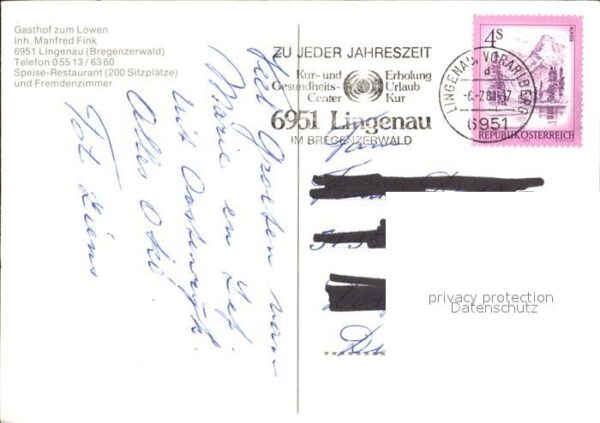 Gasthof zum Löwen
Inh. Manfred Fink
6951 Lingenau (Bregenzerwald)
Telefon 0 55 13 / 63 60
Speise-Restaurant (200 Sitzplätze)
und Fremdenzimmer
ZU JEDER JAHRESZEIT
Kur- und Gesundheits-Center
Erholung Urlaub Kur
6951 Lingenau
IM BREGENZERWALD
4S
REPUBLIK ÖSTERREICH
LINGENAU, VORARLBERG
6951
Groeten van
Marie en
uit Oostenrijk.
Alles Oké
Tot Ziens
privacy protection
Datenschutz